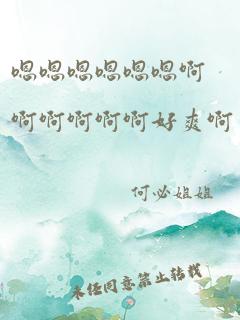 嗯嗯嗯嗯嗯嗯啊
啊啊啊啊啊好爽啊
何必姐姐
未经同意禁止转载